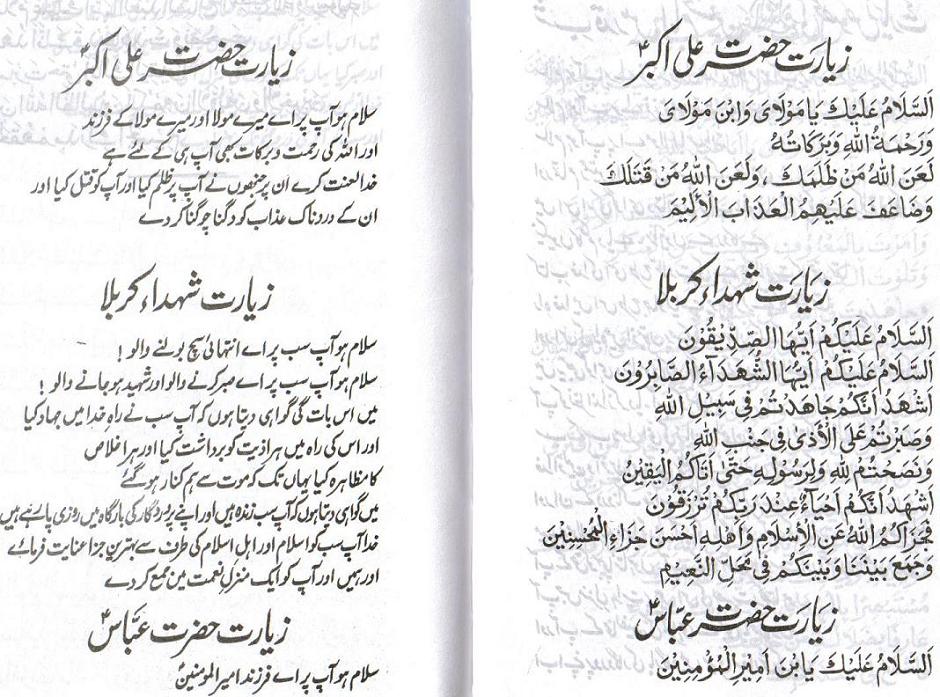 زیارت حضرت علی اکبرؑ
اَلسَّلَامُ عَلَيْكَ يَا مَوْلَايَ وَابْنَ مَوْلَايَ
وَرَحْمَةُ اللهِ وَبَرَكَاتُهُ
لَعَنَ اللهُ مَنْ ظَلَمَكَ، وَلَعَنَ اللهُ مَنْ قَتَلَكَ
وَضَاعَفَ عَلَيْهِمُ الْعَذَابَ الْأَلِيْمَ
زیارت شہداء کربلا
اَلسَّلَامُ عَلَيْكُمْ اَيُّهَا الصِّدِّيْقُوْنَ
اَلسَّلَامُ عَلَيْكُمْ اَيُّهَا الشُّهَدَآءُ الصَّابِرُوْنَ
اَشْهَدُ اَنَّكُمْ جَاهَدْتُمْ فِي سَبِيْلِ اللهِ
وَصَبَرْتُمْ عَلَى الْأَذَىٰ فِي جَنْبِ اللهِ
وَنَصَحْتُمْ لِلّٰهِ وَلِرَسُوْلِهِ حَتَّىٰ اَتَاكُمُ الْيَقِيْنُ
اَشْهَدُ اَنَّكُمْ اَحْيَاءٌ عِنْدَ رَبِّكُمْ تُرْزَقُوْنَ
فَجَزَاكُمُ اللهُ عَنِ الْأِسْلَامِ وَاَهْلِهِ اَحْسَنَ جَزَاءِ الْمُحْسِنِيْنَ
وَجَمَعَ بَيْنَنَا وَبَيْنَكُمْ فِي مَحَلِّ النَّعِيْمِ
زیارت حضرت عباسؑ
اَلسَّلَامُ عَلَيْكَ يَا بْنَ اَمِيْرِ الْمُؤْمِنِيْنَ
زیارت حضرت علی اکبرؑ
سلام ہو آپ پر اے میرے مولا اور میرے مولا کے فرزند
اور اللہ کی رحمت و برکات بھی آپ ہی کے لئے ہے
خدا لعنت کرے ان پر جنھوں نے آپ پر ظلم کیا اور آپ کو قتل کیا اور
ان کے دردناک عذاب کو دگنا چوگنا کردے
زیارت شہداء کربلا
سلام ہو آپ سب پر اے انتہائی سچ بولنے والو !
سلام ہو آپ سب پر اے صبر کرنے والو اور شہید ہوجانے والو !
میں اس بات کی گواہی دیتا ہوں کہ آپ سب نے راہِ خدا میں جہاد کیا
اور اس کی راہ میں ہر اذیت کو برداشت کیا اور ہر اخلاص
کا مظاہرہ کیا یہاں تک کہ موت سے ہم کنار ہوگئے
میں گواہی دیتا ہوں کہ آپ سب زندہ ہیں اور اپنے پروردگار کی بارگاہ میں روزی پارہے ہیں
خدا آپ سب کو اسلام اور اہل اسلام کی طرف سے بہترین جزا عنایت فرمائے
اور ہمیں اور آپ کو ایک منزلِ نعمت میں جمع کردے
زیارت حضرت عباسؑ
سلام ہو آپ پر اے فرزند امیرالمومنینؑ